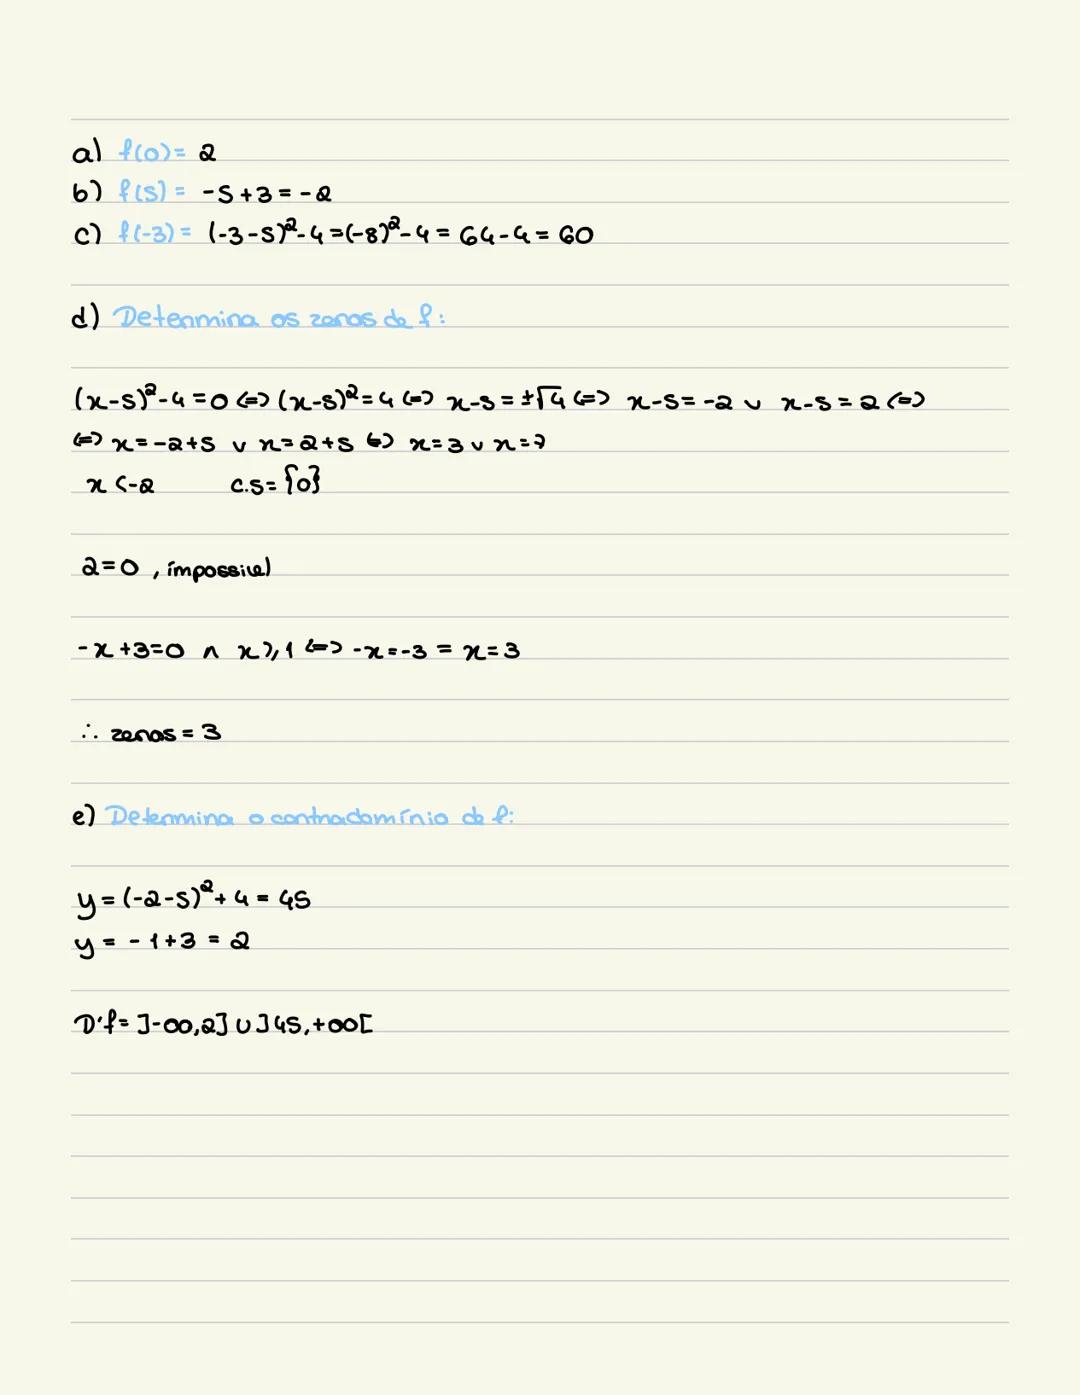 a) f(0)= 2
b) f(5) = -5+3=-2
c) f(-3)= (-3-5)²-4=(-8)²-4= 64-4= 60
d) Determina os zeros de f:
(x-5)²-4=0 <=> (x-5)²=4 <=> x-5=±√4 <=> x-5=-2 ∨ x-5=2 <=>
<=> x=-2+5 ∨ x=2+5 <=> x=3 ∨ x=7
x <-2 C.S={0}
2=0 , impossivel
-x+3=0 ∧ x⩾1 <=> -x=-3 = x=3
∴ zeros = 3
e) Determina o contradomínio de f:
y=(-2-5)²+4=45
y=-1+3=2
D'f=]-∞,2]∪]45,+∞[